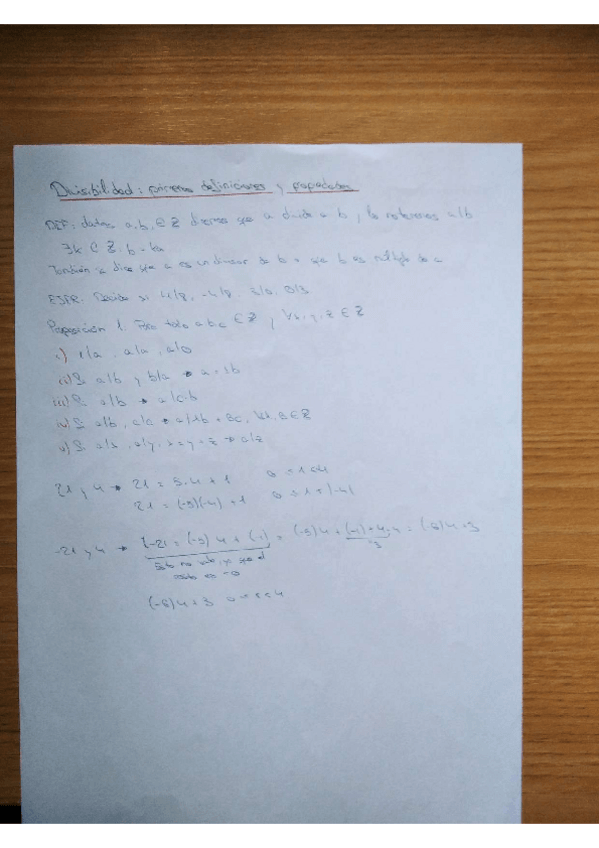 Divisibilidad: primeras definiciones y propiedades
DEF: dados a, b, ∈ Z diremos que a divide a b, lo notaremos a/b
∃k ∈ Z, b = ka
También se dice que a es un divisor de b o que b es múltiplo de a
EJER: Decide si 4/8, -4/8,
Proposición 1. Para todo a b c ∈ Z, ∀x, y, z ∈ Z
i) 1/a, a/a, a/0
ii) Si a/b y b/a → a = ±b
iii) Si a/b → a/c·b
iv) Si a/b, a/c → a/Ab + Bc, ∀A, B ∈ Z
v) Si a/x, a/y, x+y=z → a/z
21 y 4 → 21 = 5·4 + 1 0 ≤ 1 < 4
21 = (-5)(-4) + 1 0 ≤ 1 < |-4|
-21 y 4 → (-21 = (-5) 4 + (-1)) = (-5)4 + (-1)+4-4 = (-6)4+3
3
Esto no vale, ya que el
(-6)4+3 0 ≤ 3 < 4